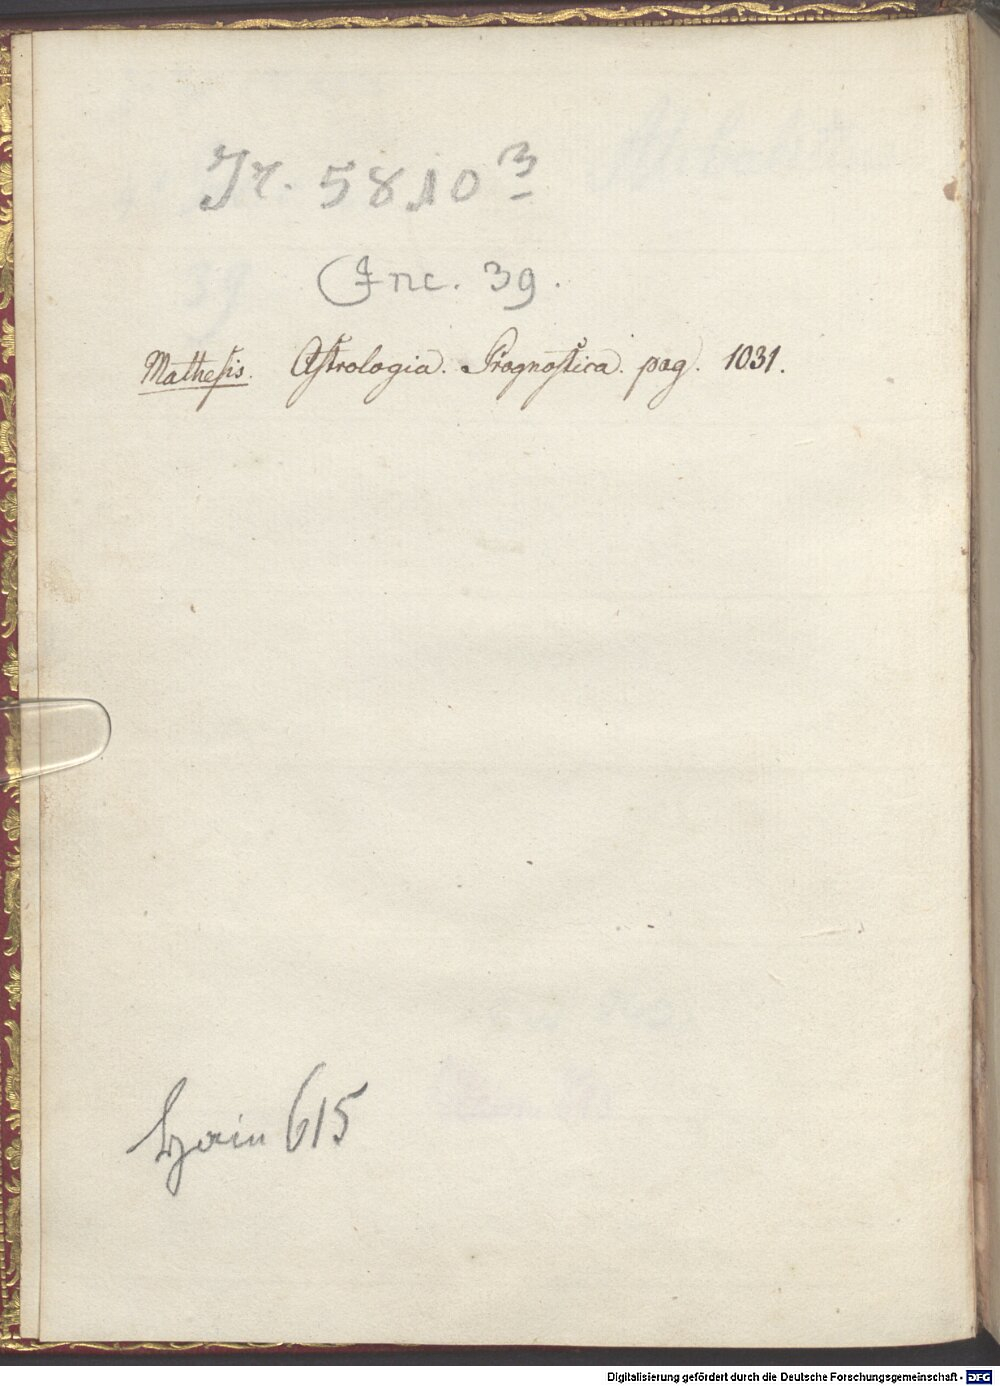 Jr. 5810 3
Inc. 39.
Mathesis. Astrologia. Prognostica. pag. 1031.
Hain 615
Digitalisierung gefördert durch die Deutsche Forschungsgemeinschaft - DFG